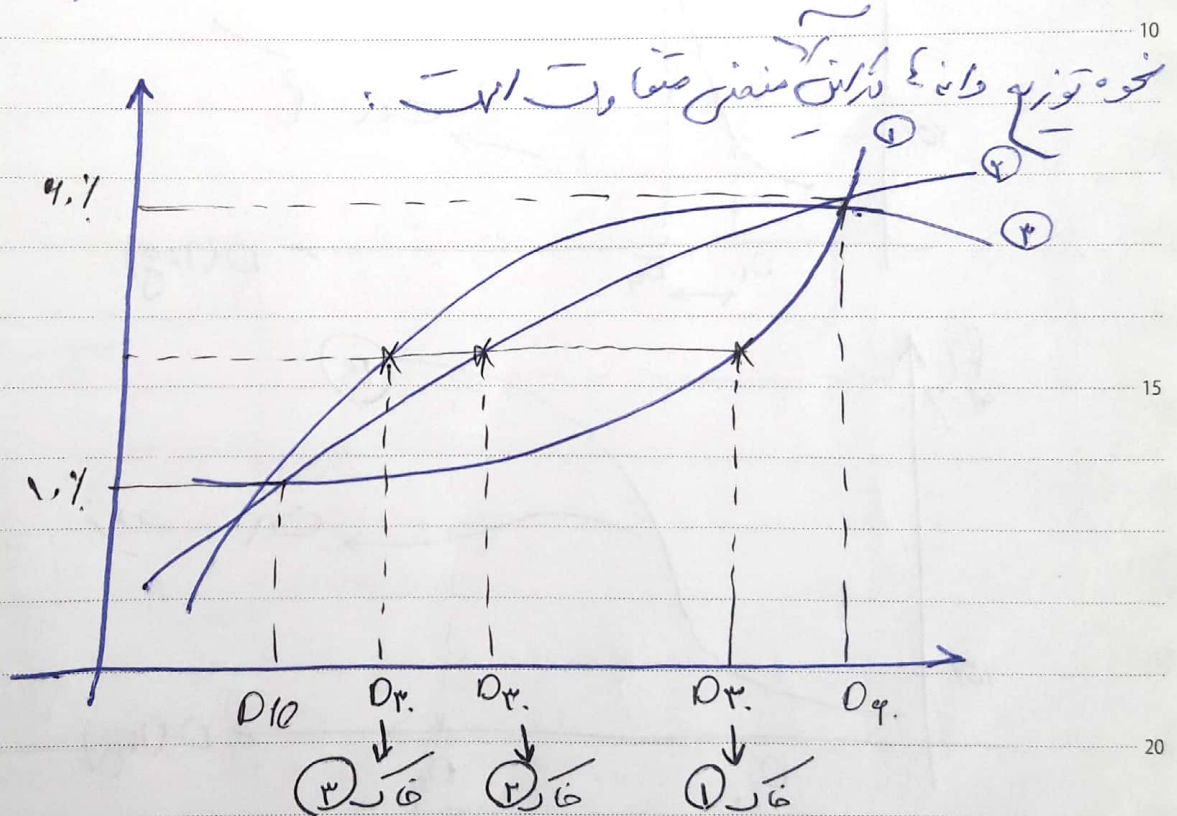 10
نحوه توزیع دانه ها در این ۳ منحنی متفاوت است :
①
②
۶۰٪
③
15
۱۰٪
D10 D۳۰ D۳۰ D۳۰ D۶۰
20
خاک ③ خاک ② خاک ①